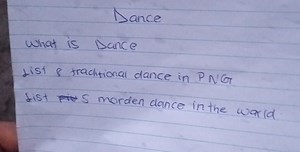 Dance
What is Dance
List 8 traditional dance in PNG
List 5 morden dance in the world